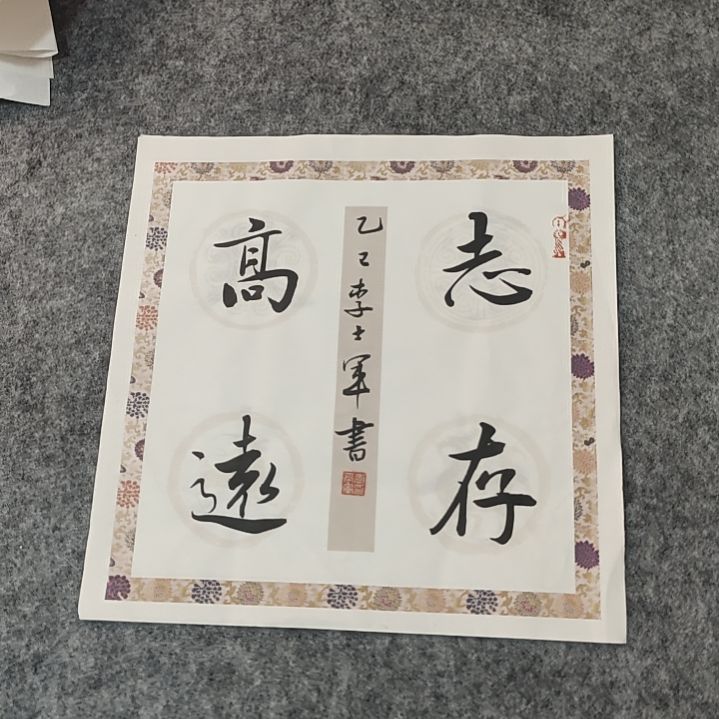 志存
高遠
乙巳李士軍書